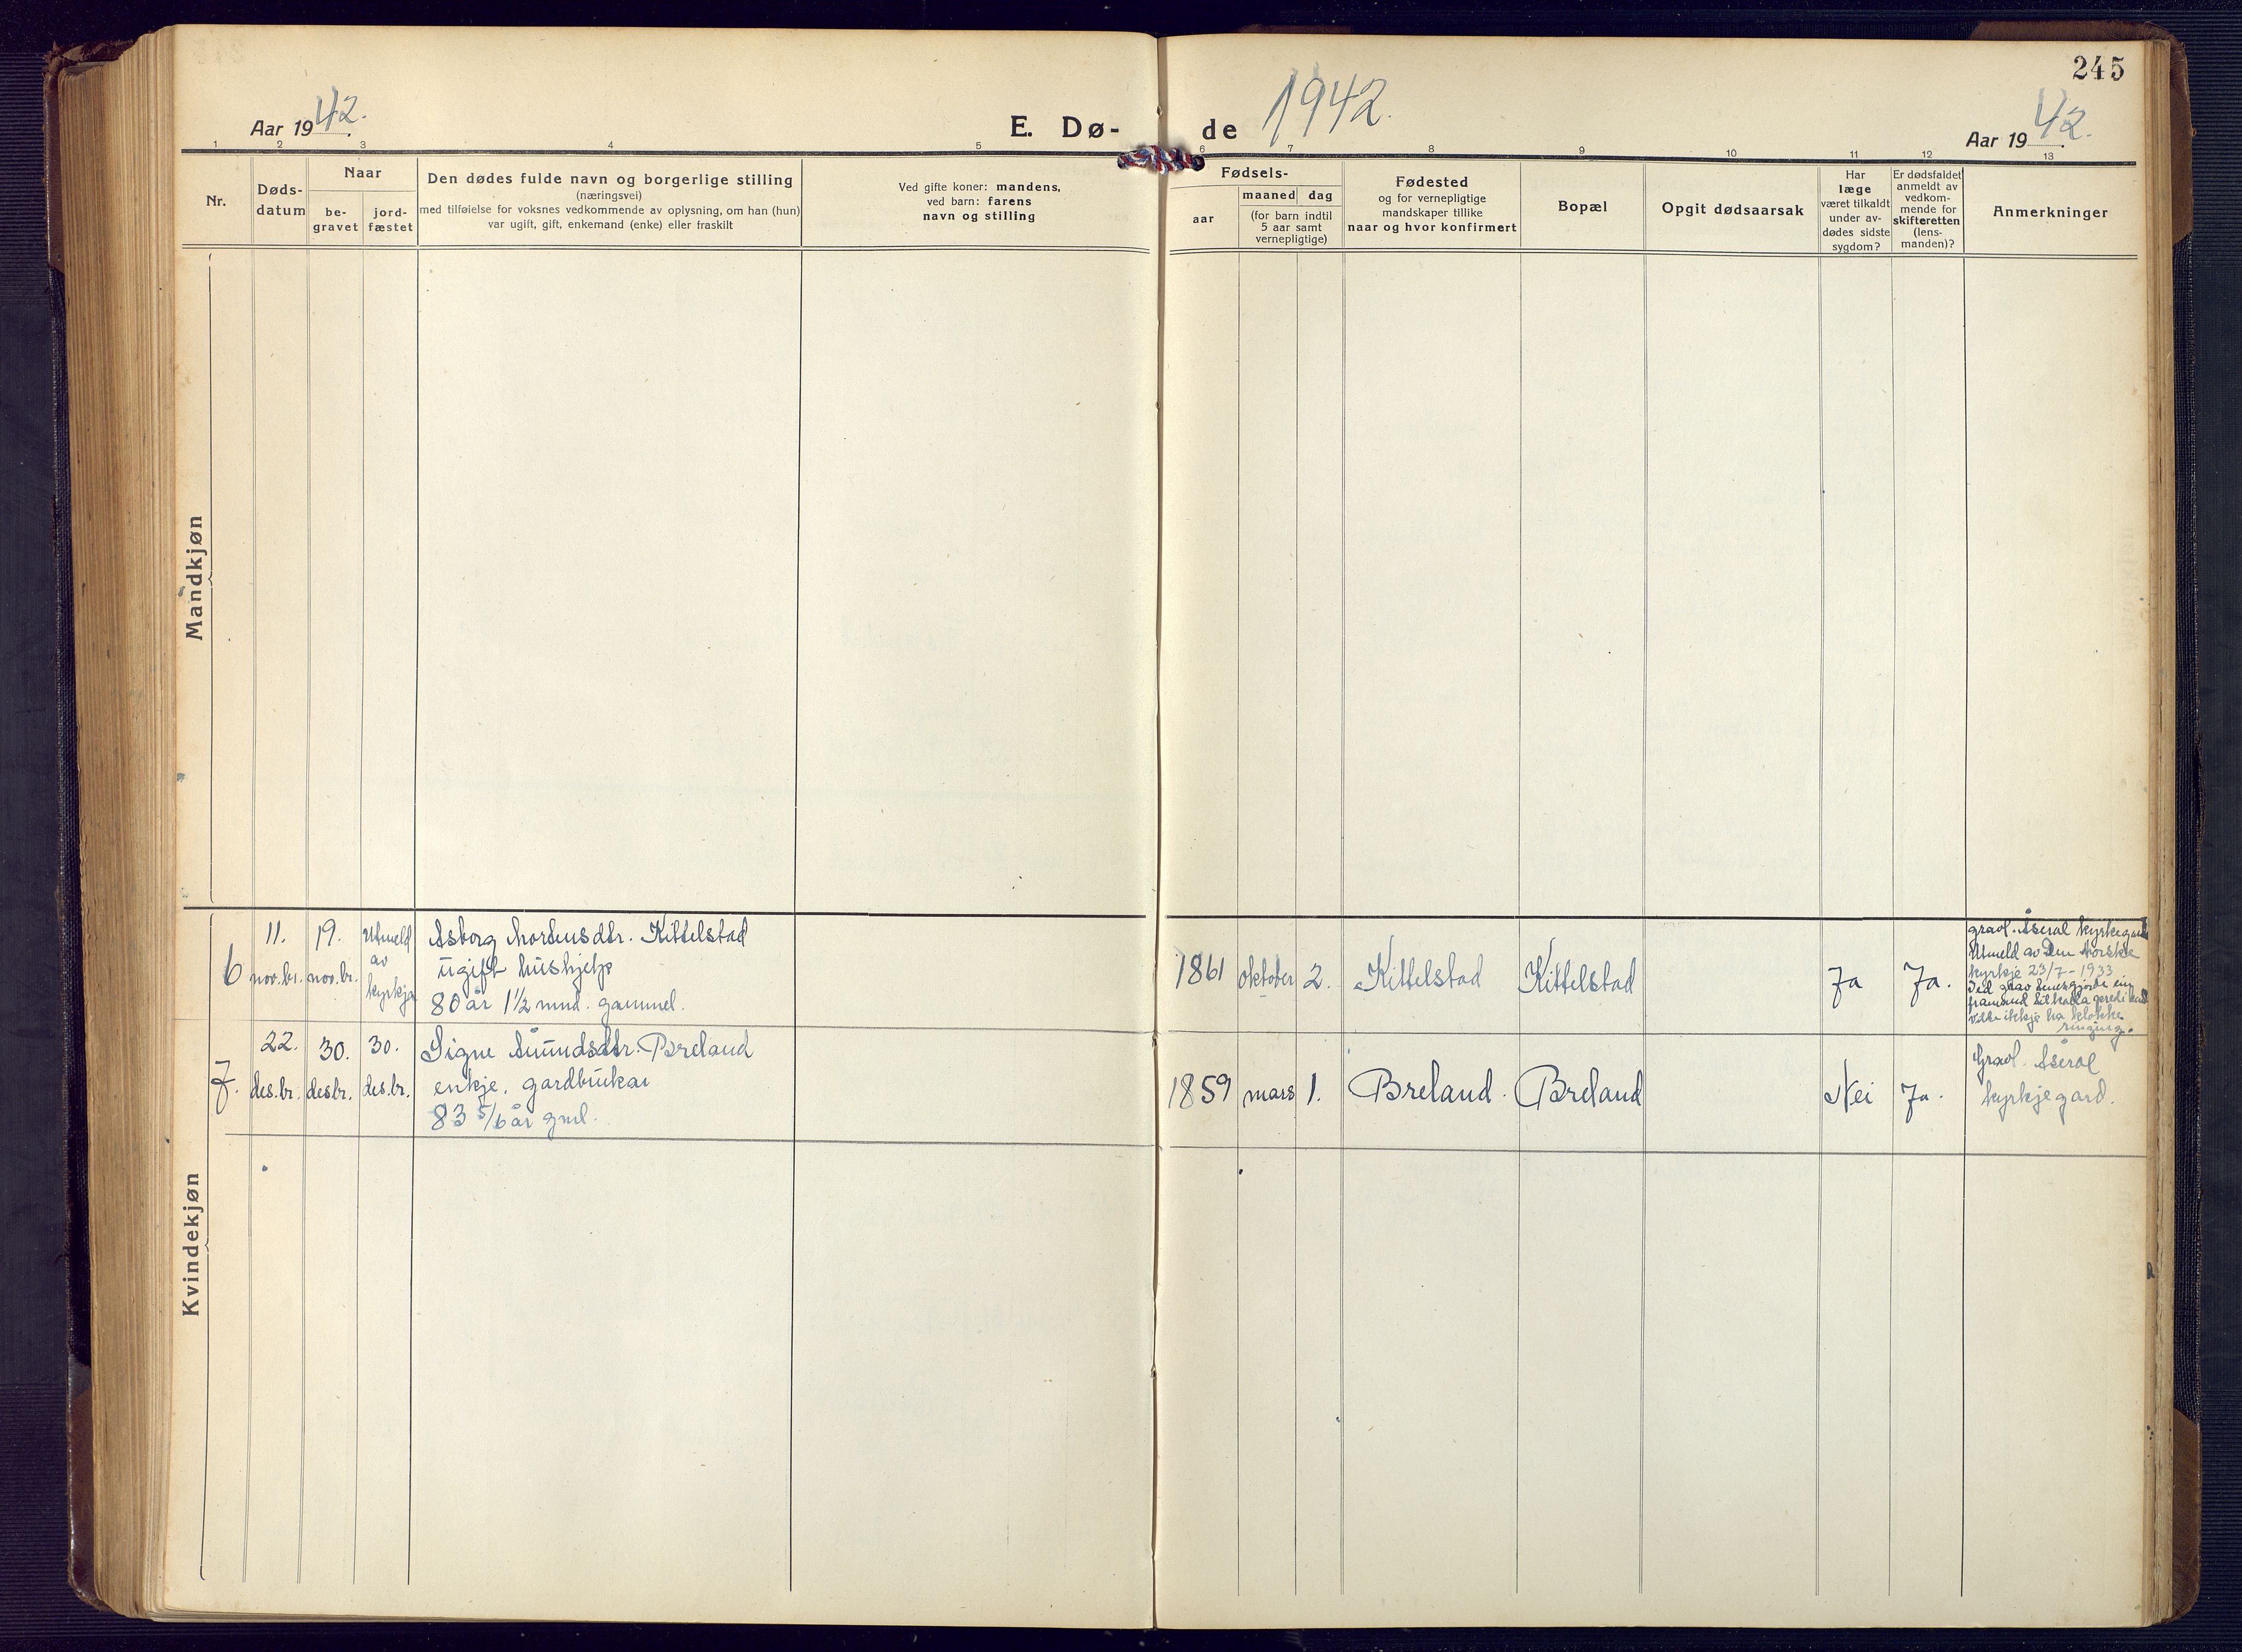 245
Aar 1942.
E. Dø-
de 1942.
Aar 1942.
1 2 3 4 5 6 7 8 9 10 11 12 13
Nr.
Døds-
datum
Naar
be-
gravet
jord-
fæstet
Den dødes fulde navn og borgerlige stilling
(næringsvei)
med tilføielse for voksnes vedkommende av oplysning, om han (hun)
var ugift, gift, enkemand (enke) eller fraskilt
Ved gifte koner: mandens,
ved barn: farens
navn og stilling
Fødsels-
aar
maaned dag
(for barn indtil
5 aar samt
vernepligtige)
Fødested
og for vernepligtige
mandskaper tillike
naar og hvor konfirmert
Bopæl
Opgit dødsaarsak
Har
læge
været tilkaldt
under av-
dødes sidste
sygdom?
Er dødsfaldet
anmeldt av
vedkom-
mende for
skifteretten
(lens-
manden)?
Anmerkninger
Mandkjøn
Kvindekjøn
6
11.
nov.br.
19.
nov.br.
Utmeld
av
kyrkja
Asborg Mortensdtr. Kittelstad
ugift hushjelp
80 år 1½ mnd. gammel.
1861
oktober
2.
Kittelstad
Kittelstad
Ja
Ja.
gravl. Åseral kyrkjegard
Utmeld av Den Norske
kyrkje 23/7-1933
Ved grav
framand
ikkje ha klokke
ringing.
7.
22.
des.br.
30.
des.br.
30.
des.br.
Signe Åmundsdtr. Breland
enkje. gardbrukar
83 5/6 år gml.
1859
mars
1.
Breland.
Breland
Nei
Ja.
Gravl. Åseral
kyrkjegard.